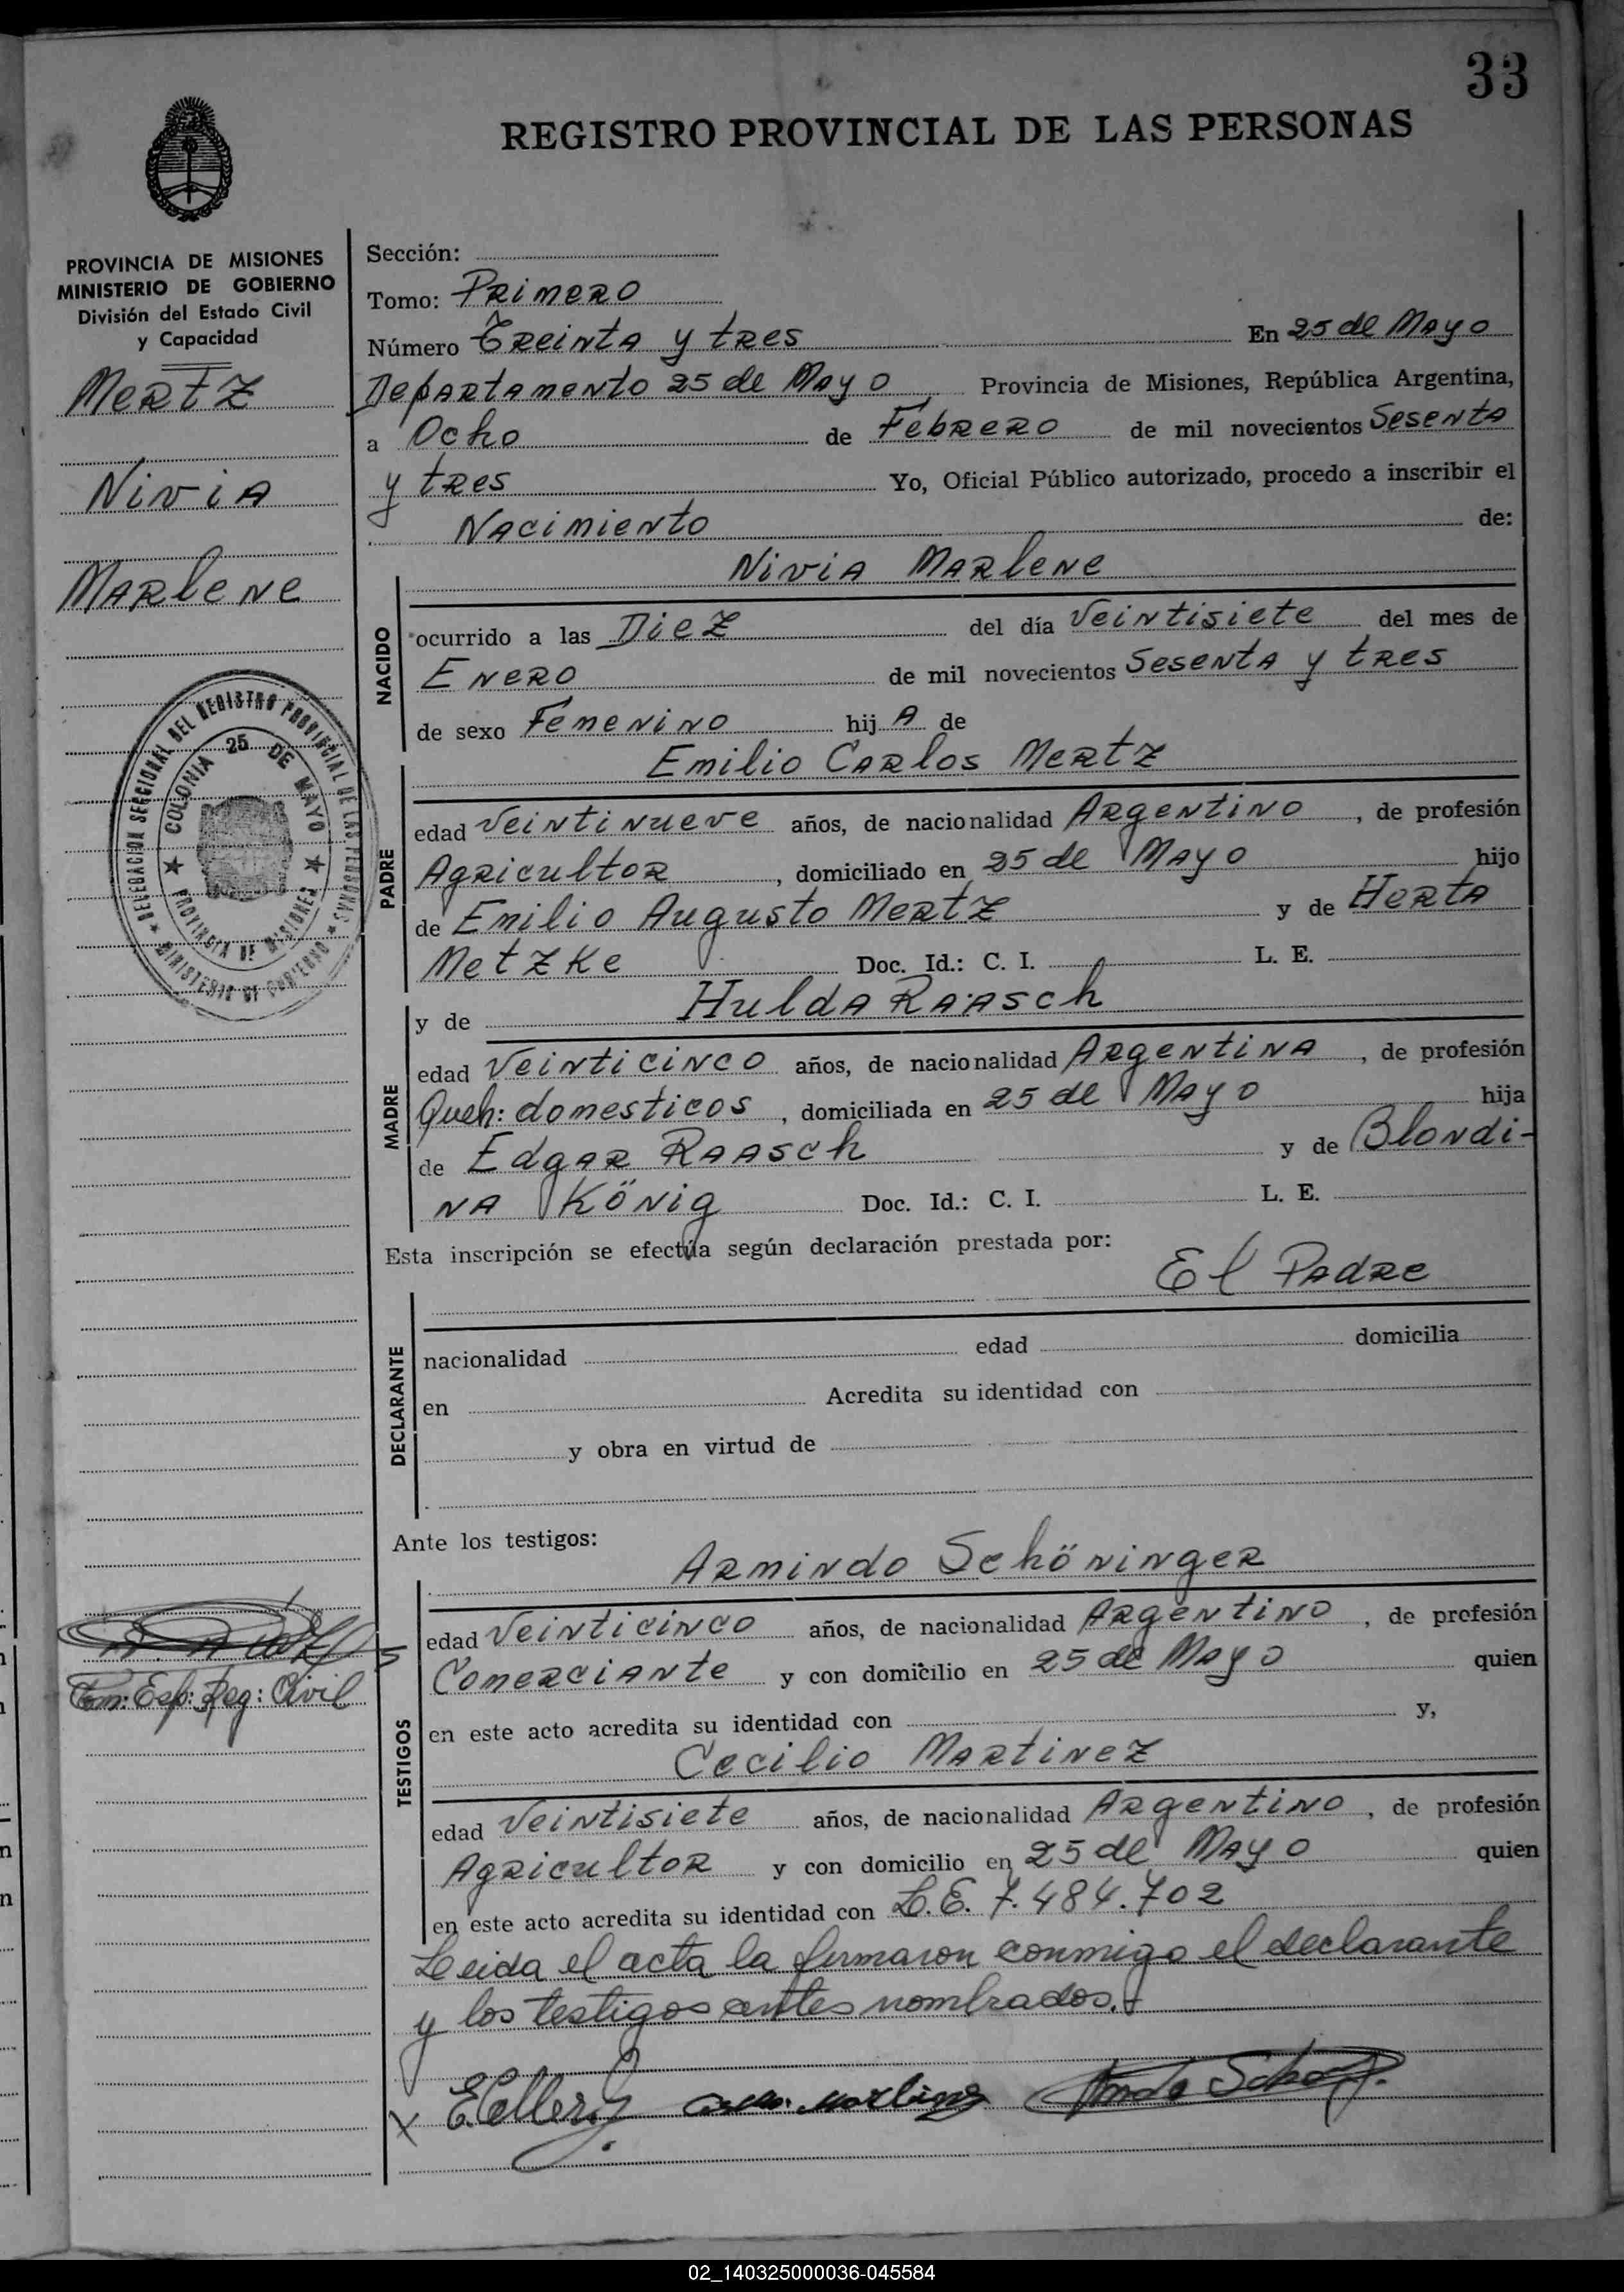 33
REGISTRO PROVINCIAL DE LAS PERSONAS
PROVINCIA DE MISIONES
MINISTERIO DE GOBIERNO
División del Estado Civil
y Capacidad
Mertz
Nivia
Marlene
DELEGACION SECCIONAL DEL REGISTRO PROVINCIAL DE LAS PERSONAS
MINISTERIO DE GOBIERNO
COLONIA 25 DE MAYO
PROVINCIA DE MISIONES
Reg: Civil
Sección:
Tomo: Primero
Número Treinta y tres En 25 de Mayo
Departamento 25 de Mayo Provincia de Misiones, República Argentina,
a Ocho de Febrero de mil novecientos Sesenta
y tres Yo, Oficial Público autorizado, procedo a inscribir el
Nacimiento de:
Nivia Marlene
NACIDO
ocurrido a las Diez del día Veintisiete del mes de
Enero de mil novecientos Sesenta y tres
de sexo Femenino hij A de
Emilio Carlos Mertz
PADRE
edad Veintinueve años, de nacionalidad Argentino, de profesión
Agricultor, domiciliado en 25 de Mayo hijo
de Emilio Augusto Mertz y de Herta
Metzke Doc. Id.: C. I. L. E.
y de Hulda Raasch
MADRE
edad Veinticinco años, de nacionalidad Argentina, de profesión
Queh: domesticos, domiciliada en 25 de Mayo hija
de Edgar Raasch y de Blondi-
na König Doc. Id.: C. I. L. E.
Esta inscripción se efectúa según declaración prestada por:
El Padre
DECLARANTE
nacionalidad edad domicilia
en Acredita su identidad con
y obra en virtud de
Ante los testigos:
Armindo Schöninger
TESTIGOS
edad Veinticinco años, de nacionalidad Argentino, de profesión
Comerciante y con domicilio en 25 de Mayo quien
en este acto acredita su identidad con y,
Cecilio Martinez
edad Veintisiete años, de nacionalidad Argentino, de profesión
Agricultor y con domicilio en 25 de Mayo quien
en este acto acredita su identidad con L.E. 7.484.702
Leida el acta la firmaron conmigo el declarante
y los testigos antes nombrados.
02_140325000036-045584